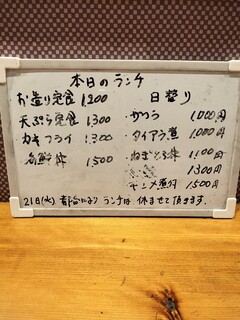 本日のランチ
お造り定食 1200
天ぷら定食 1300
カキフライ 1300
海鮮丼 1500
日替り
・かつら 1,000円
・タイアラ煮 1,000円
・ねぎとろ丼 1100円
1300円
煮付 1500円
21日(水) 都合により ランチは 休ませて頂きます。